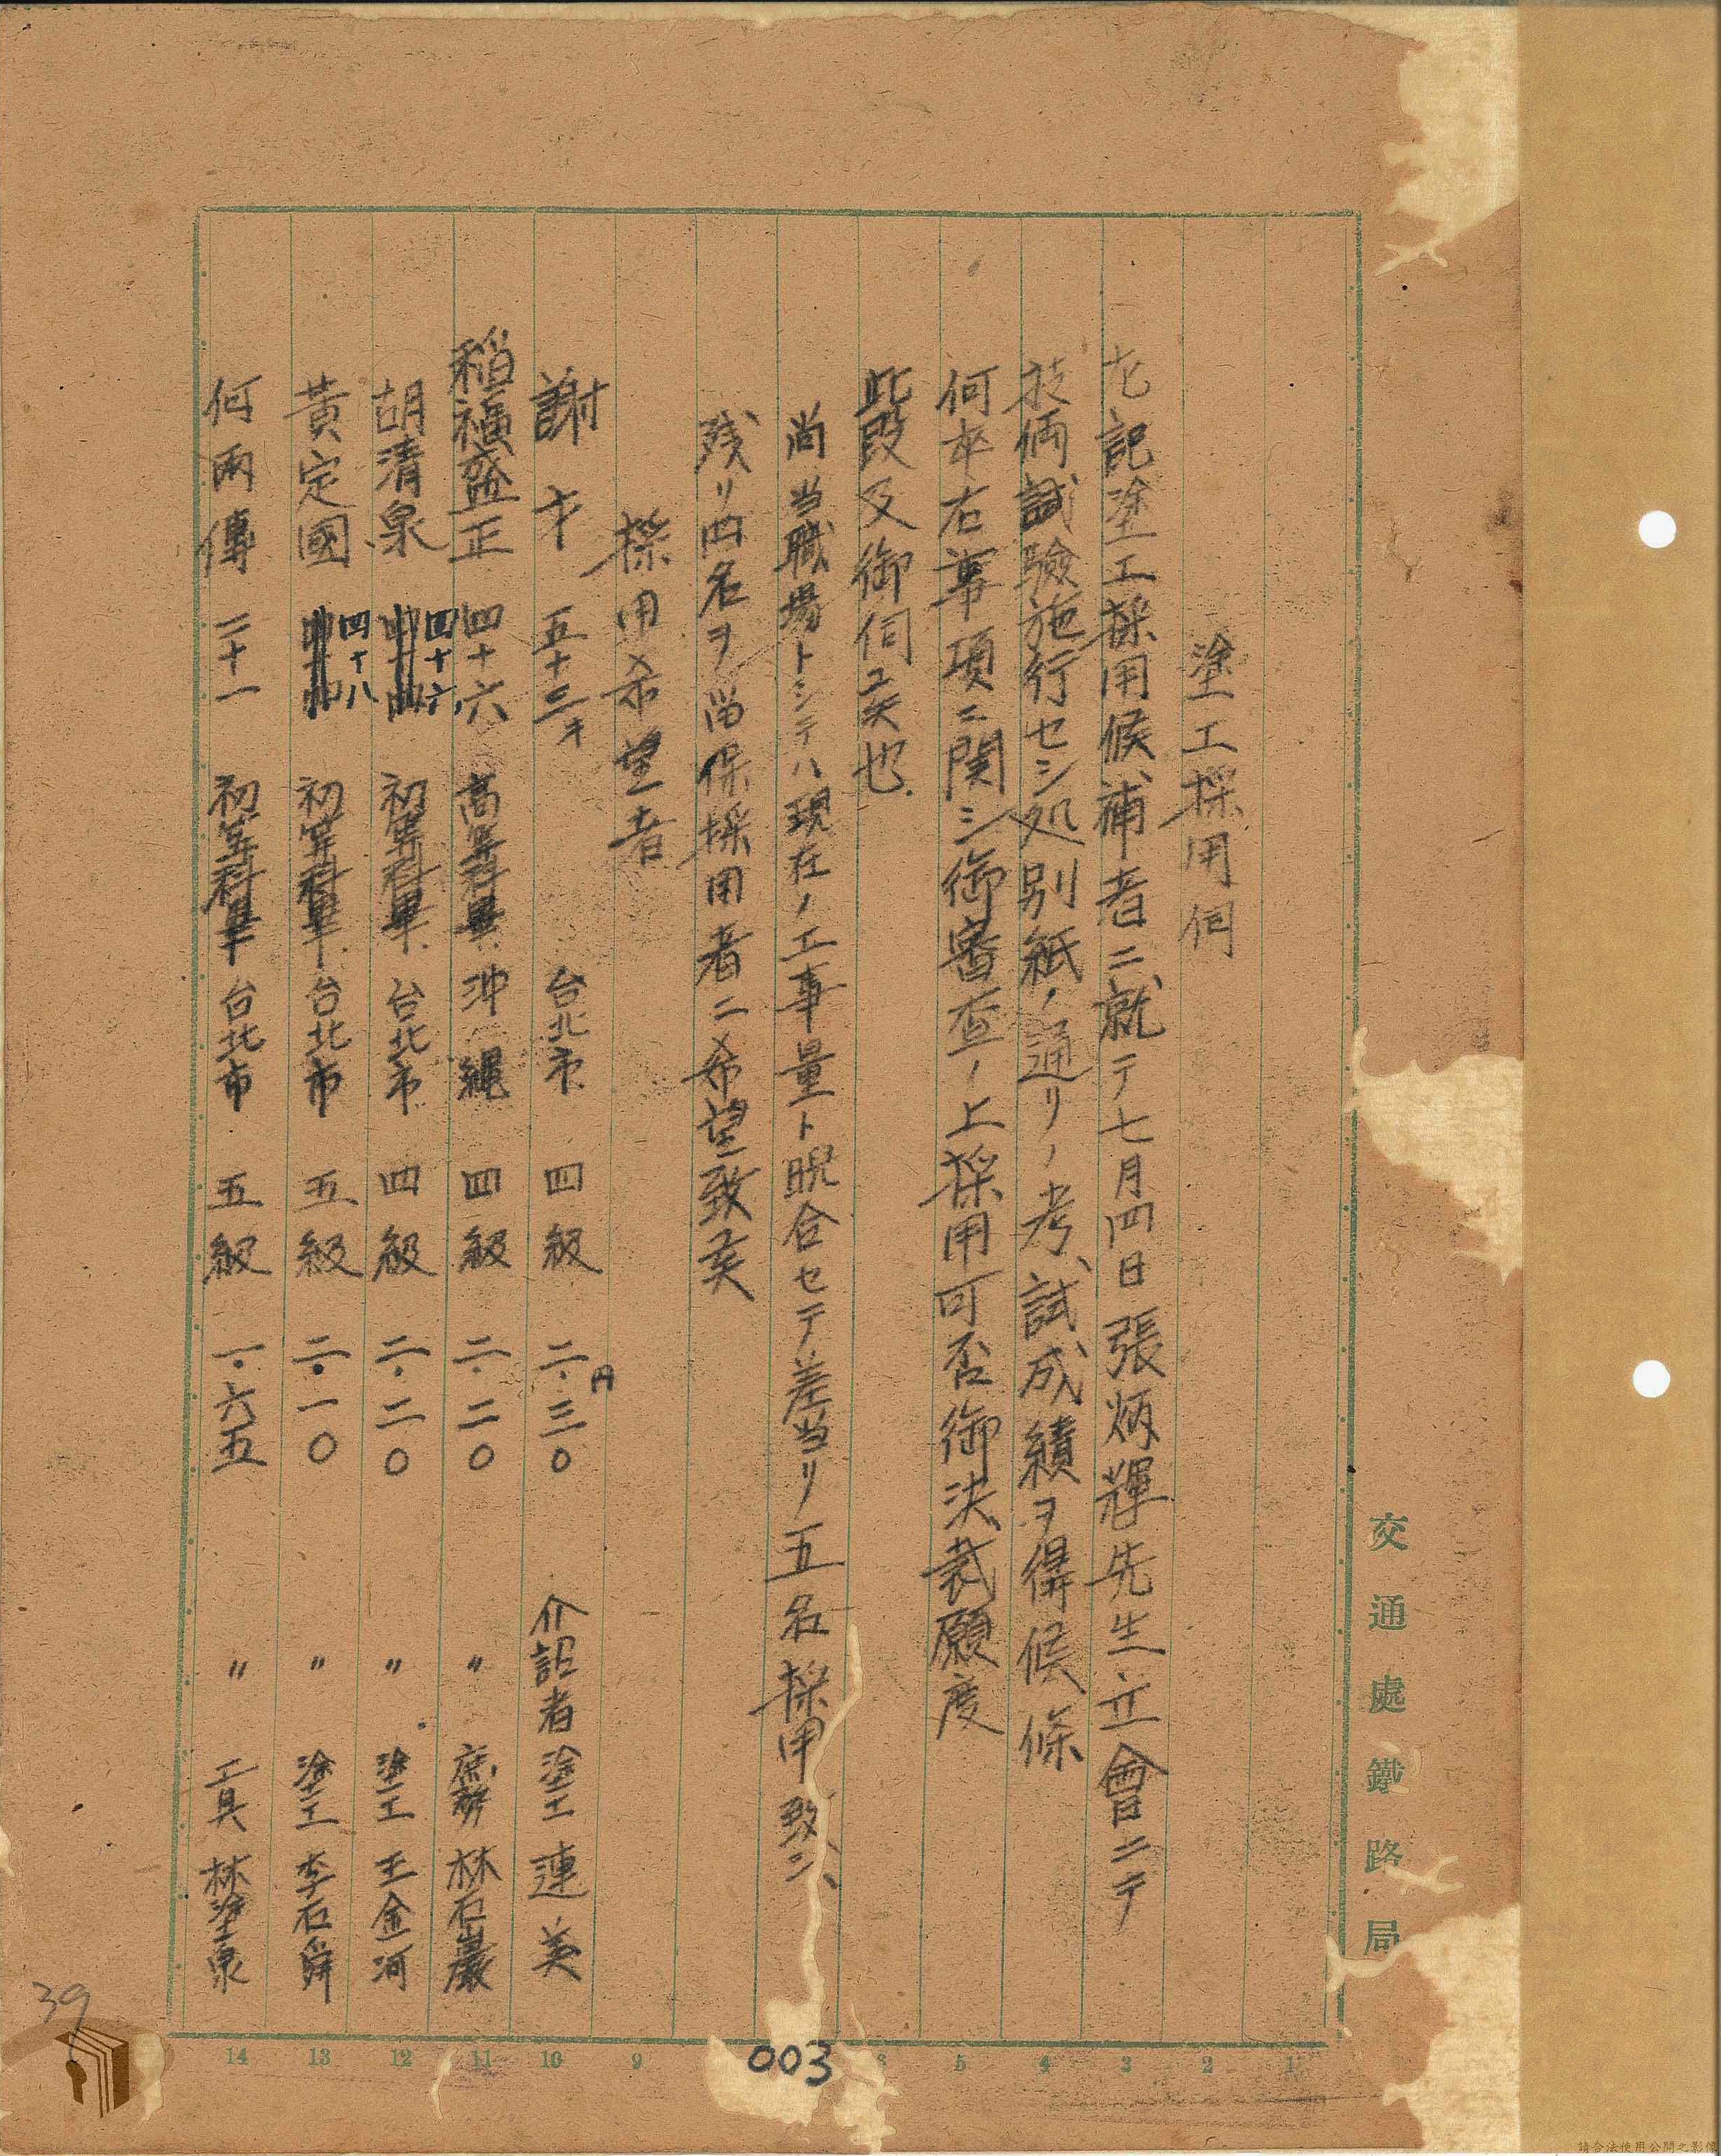 塗工採用伺
左記塗工採用候補者ニ就テ七月四日張炳輝先生立會ニテ
技倆試驗施行セシ処別紙ノ通リノ考試成績ヲ得候條
何卒右事項ニ関シ御審査ノ上採用可否御決裁願度
此段及御伺候也
尚当職場トシテハ現在ノ工事量ト睨合セテ差当リ五名採用致シ、
残リ四名ヲ留保採用者ニ希望致候
採用希望者
謝才 五十三才 台北市 四級 二.三〇円 介詔者 塗工 連美
稻福盛正 四十六 高等科畢 沖縄 四級 二.二〇 〃 庶務 林石巖
胡清泉 四十六 初等科畢 台北市 四級 二.二〇 〃 塗工 王金河
黃定國 四十八 初等科畢 台北市 五級 二.一〇 〃 塗工 李石舜
何兩傳 二十一 初等科畢 台北市 五級 一.六五 〃 工具 林塗泉
交通處鐵路局
1 2 3 4 5 6 9 10 11 12 13 14
003
39
請合法使用公開之影像